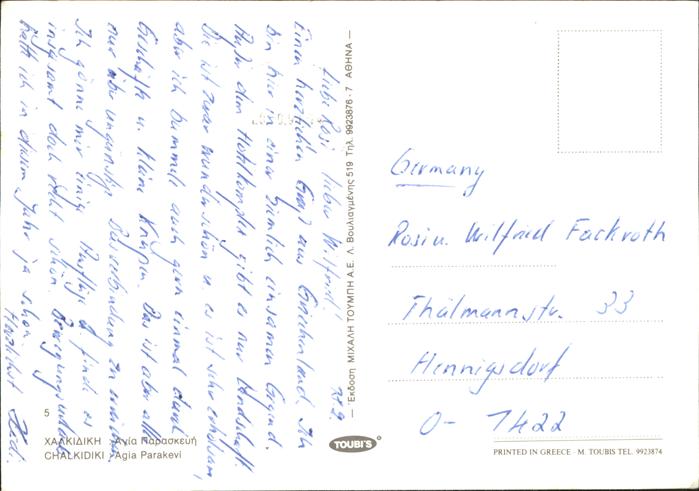 Liebe Rosi, lieber Wilfried!
Einen herzlichen Gruß aus Griechenland. Ich
bin hier in einer ziemlich einsamen Gegend.
Außer dem Hotelkomplex gibt es nur Landschaft.
Die ist zwar wunderschön u. es ist sehr erholsam,
aber ich bummele auch gern einmal durch
Geschäfte u. kleine Kneipen. Das ist aber alles
nur über ungünstige Busverbindung zu erreichen.
Ich gönne mir einige Ausflüge u. finde es
insgesamt doch recht schön.
hatte ich in diesem Jahr ja schon.
Herzlichst
5
ΧΑΛΚΙΔΙΚΗ : Αγία Παρασκευή
CHALKIDIKI : Agia Parakevi
— Εκδοση ΜΙΧΑΛΗ ΤΟΥΜΠΗ Α.Ε. Λ. Βουλιαγμένης 519 Τηλ. 9923876 - 7 ΑΘΗΝΑ —
TOUBI'S
Germany
Rosi u. Wilfried Fackroth
Thälmannstr. 33
Hennigsdorf
O- 1422
PRINTED IN GREECE - M. TOUBIS TEL. 9923874